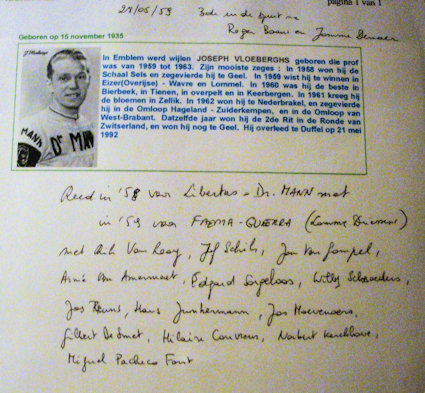 pagina 1 van 1
24/05/59 3de in de spurt na
Roger Baens en
Geboren op 15 november 1935
In Emblem werd wijlen JOSEPH VLOEBERGHS geboren die prof
was van 1959 tot 1963. Zijn mooiste zeges : In 1958 won hij de
Schaal Sels en zegevierde hij te Geel. In 1959 wist hij te winnen in
Eizer(Overijse) - Wavre en Lommel. In 1960 was hij de beste in
Bierbeek, in Tienen, in overpelt en in Keerbergen. In 1961 kreeg hij
de bloemen in Zellik. In 1962 won hij te Nederbrakel, en zegevierde
hij in de Omloop Hageland - Zuiderkempen, en in de Omloop van
West-Brabant. Datzelfde jaar won hij de 2de Rit in de Ronde van
Zwitserland, en won hij nog te Geel. Hij overleed te Duffel op 21 mei
1992
MANN Dr MAN
Reed in '58 voor Libertas - Dr. MANN met
in '59 voor FAEMA - GUERRA (Lomme Driessens)
met Rik Van Looy, Jef Schils, Jan Van Gompel,
Armé Van Amermaet, Edgard Sorgeloos, Willy Schroeders,
Jos Theuns, Hans Junkermann, Jos Hoevenaers,
Gilbert Desmet, Hilaire Couvreur, Norbert Kerckhove,
Miguel Pacheco Font